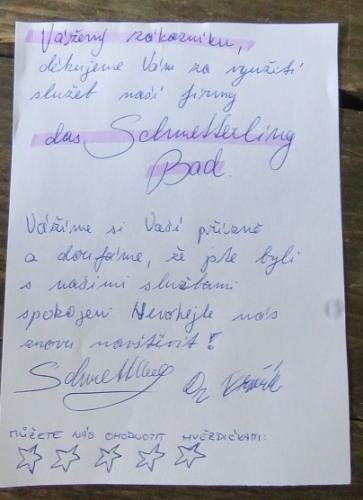 Vážený zákazníku,
děkujeme Vám za využití
služeb naší firmy
das Schmetterling
Bad.
Vážíme si Vaší přízně
a doufáme, že jste byli
s našimi službami
spokojeni Nevahejte nás
znovu navštívit!
MŮŽETE NÁS OHODNOTIT HVĚZDIČKAMI: